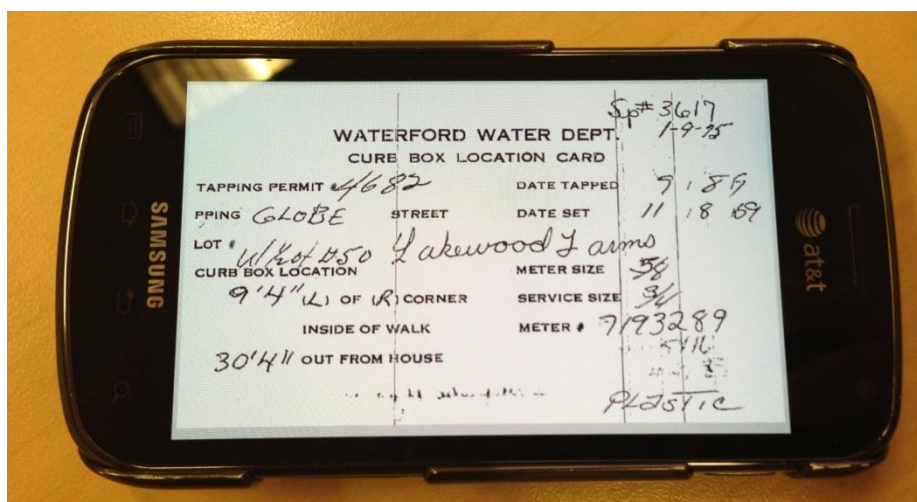 Sp# 3617
1-9-75
WATERFORD WATER DEPT.
CURB BOX LOCATION CARD
TAPPING PERMIT # 4682 DATE TAPPED 9 8 59
PPING GLOBE STREET DATE SET 11 18 59
LOT # W 1/2 of #50 Lakewood Farms
CURB BOX LOCATION METER SIZE 5/8
9'4" (L) OF (R) CORNER SERVICE SIZE 3/4
INSIDE OF WALK METER # 7193289
30'4" OUT FROM HOUSE
PLASTIC
SAMSUNG
at&t